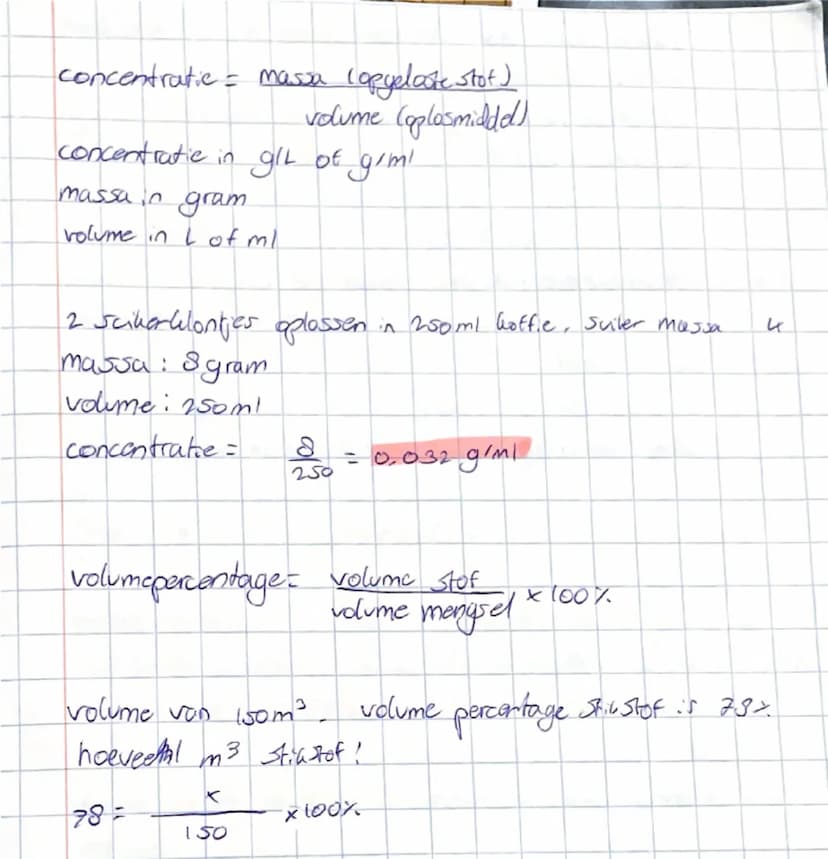 concentratie = massa (opgeloste stof)
volume (oplosmiddel)
concentratie in g/L of g/ml
massa in gram
volume in L of ml
2 suikerklontjes oplossen in 250ml koffie, suiker massa 4
massa : 8 gram
volume : 250ml
concentratie = 8/250 = 0.032 g/ml
volumepercentage = volume stof / volume mengsel x 100%
volume van 150m³. volume percentage stikstof is 78%
hoeveel m³ stikstof!
78 = x/150 x 100%